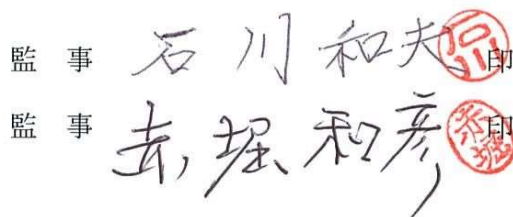 監事 石川和夫 印
監事 赤堀和彦 印